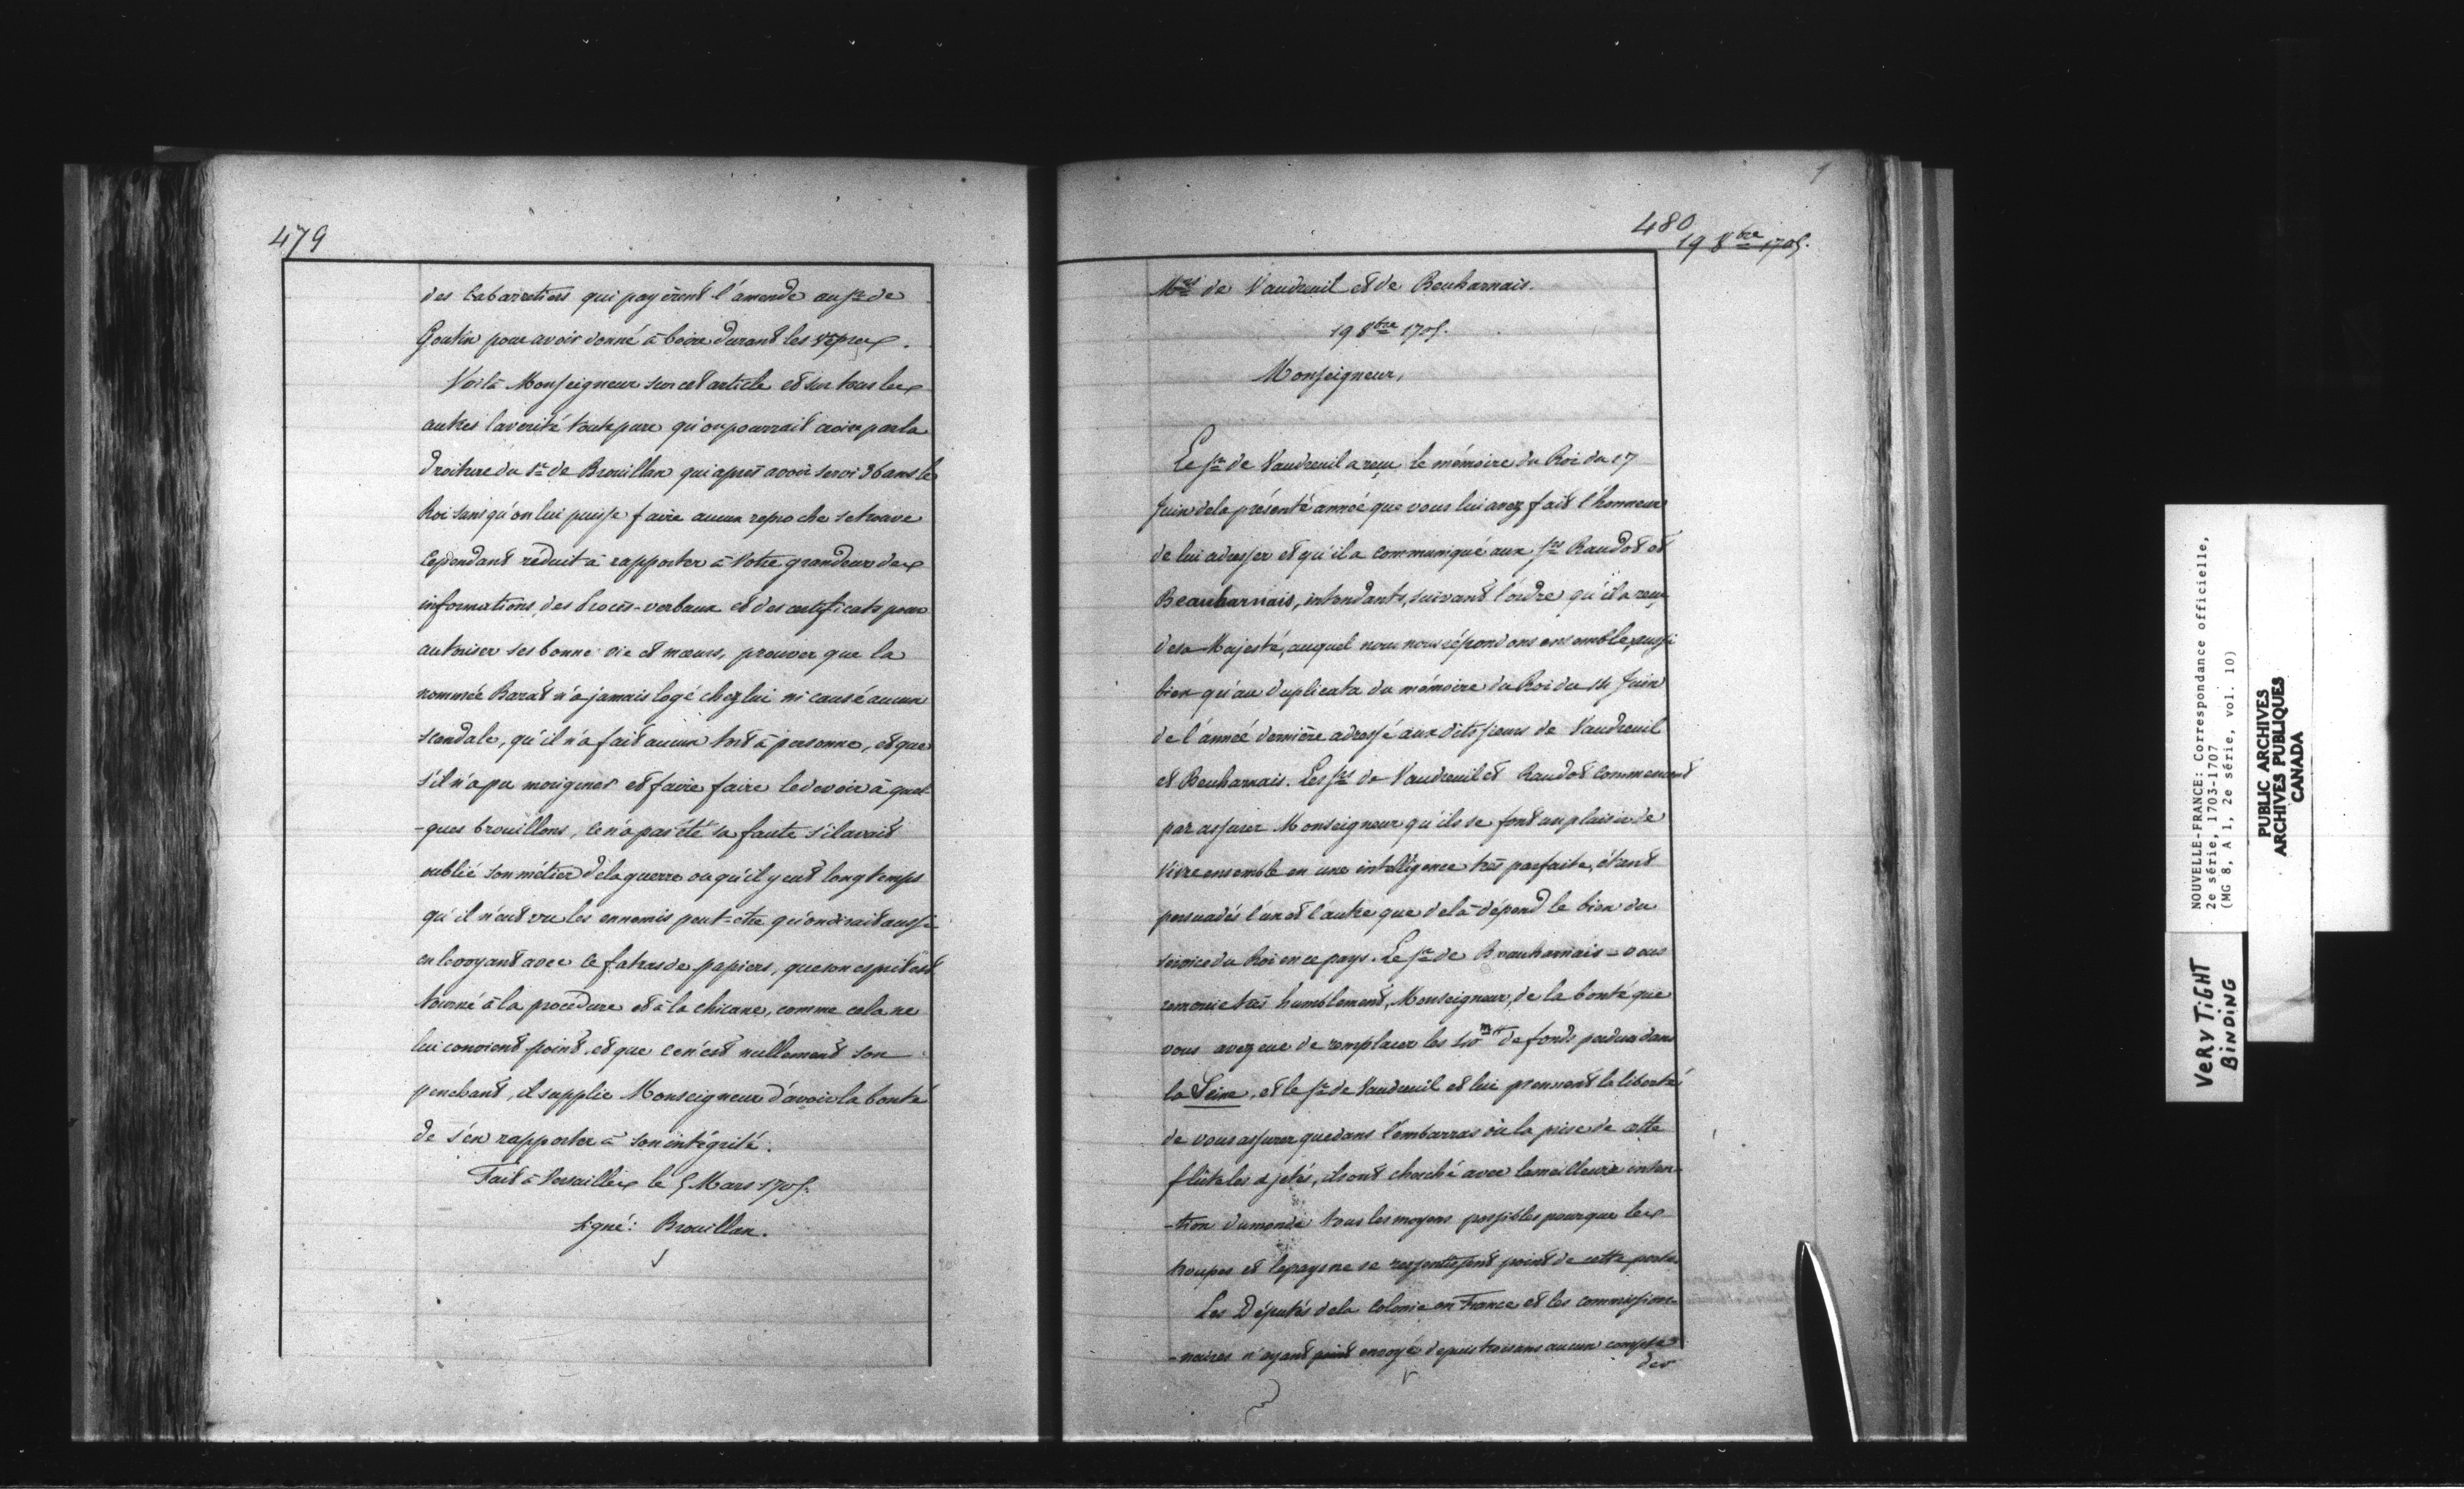 479
des Cabarretiers qui payèrent l'amende au Sr de
Goutin pour avoir donné à boire durant les vêpres.
Voilà Monseigneur sur cet article et sur tous les
autres la verité toute pure qu'on pourrait croire par la
droiture du Sr de Brouillan qui après avoir servi 36 ans le
Roi sans qu'on lui puisse faire aucun reproche se trouve
Cependant réduit à rapporter à Votre grandeur des
informations, des Procès-verbaux et des certificats pour
autoriser ses bonne vie et mœurs, prouver que la
nommée Barat n'a jamais logé chez lui ni causé aucun
scandale, qu'il n'a fait aucun tort à personne, et que
s'il n'a pu morigener et faire faire le devoir à quel-
-ques brouillons, ce n'a pas été sa faute s'il avait
oublié son métier de la guerre ou qu'il y eut longtemps
qu'il n'eut vu les ennemis peut-être qu'on dirait aussi
en le voyant avec ce fatras de papiers, que son esprit est
tourné à la procédure et à la chicane, comme cela ne
lui convient point, et que ce n'est nullement son
penchant, il supplie Monseigneur d'avoir la bonté
de s'en rapporter à son intégrité.
Fait à Versailles le 5 Mars 1705.
Signé: Brouillan.
480
19 8bre 1705.
Mrs de Vaudreuil et de Beuharnais.
19 8bre 1705.
Monseigneur,
Le Sr de Vaudreuil a reçu le mémoire du Roi du 17
Juin de la présente année que vous lui avez fait l'honneur
de lui adresser et qu'il a communiqué aux Srs Raudot et
Beauharnais, intendants, suivant l'ordre qu'il a reçu
de sa Majesté, auquel nous nous répondons ensemble, aussi
bien qu'au duplicata du mémoire du Roi du 14 Juin
de l'année dernière adressé aux dits sieurs de Vaudreuil
et Beuharnais. Les Srs de Vaudreuil et Raudot commencent
par assurer Monseigneur qu'ils se font un plaisir de
vivre ensemble en une intelligence très parfaite, étant
persuadés l'un et l'autre que de là dépend le bien du
service du Roi en ce pays. Le Sr de Beauharnais vous
remercie très humblement, Monseigneur, de la bonté que
vous avez eue de remplacer les de fonds perdus dans
la Seine, et le Sr de Vaudreuil et lui prennent la liberté
de vous assurer que dans l'embarras où la prise de cette
flûte les a jetés, ils ont cherché avec la meilleure inten-
-tion du monde tous les moyens possibles pour que les
troupes et le pays ne se ressentissent point de cette perte.
Les Députés de la Colonie en France et les commission-
-naires n'ayant point envoyé depuis trois ans aucun compte
des
NOUVELLE-FRANCE: Correspondance officielle,
2e série, 1703-1707
(MG 8, A 1, 2e série, vol. 10)
PUBLIC ARCHIVES
ARCHIVES PUBLIQUES
CANADA
VERY TiGHT
BiNDiNG